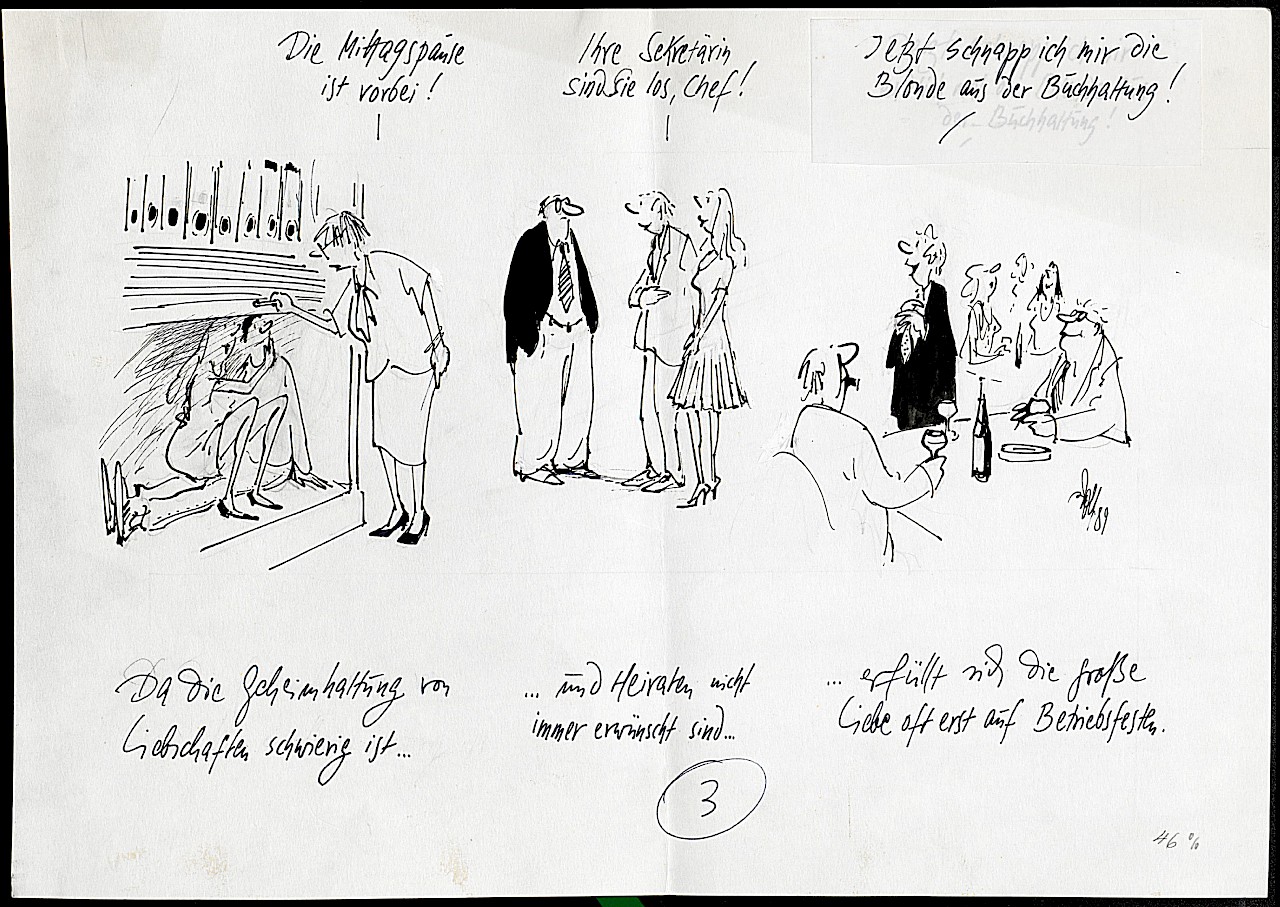 Die Mittagspause
ist vorbei!
Ihre Sekretärin
sind Sie los, Chef!
Jetzt schnapp ich mir die
Blonde aus der Buchhaltung!
der Buchhaltung!
Da die Geheimhaltung von
Liebschaften schwierig ist...
... und Heiraten nicht
immer erwünscht sind...
... erfüllt sich die große
Liebe oft erst auf Betriebsfesten.
89
3
46 %